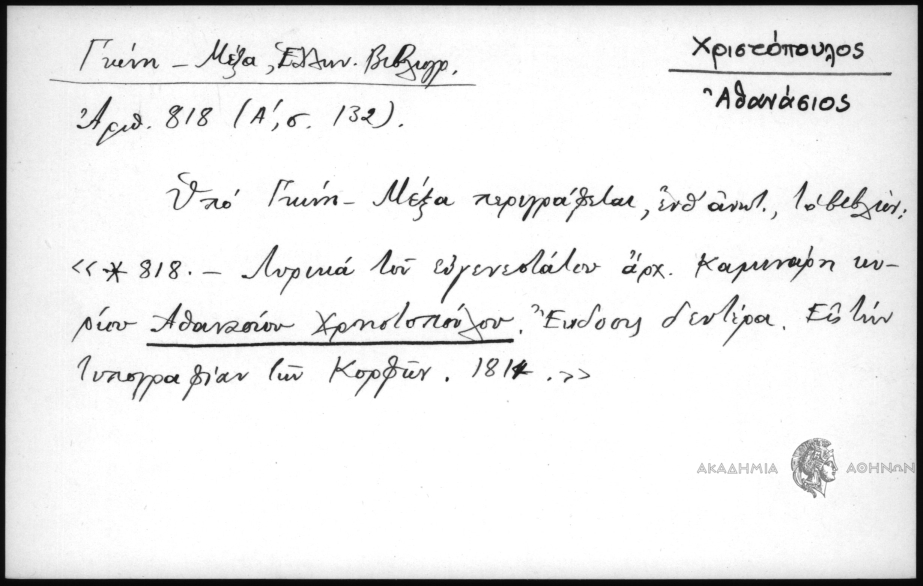 Γκίνη - Μέξα, Ἑλλην. Βιβλιογρ.
Χριστόπουλος
Ἀθανάσιος
Ἀριθ. 818 (Α', σ. 132).
Ὑπό Γκίνη - Μέξα περιγράφεται, ἐνθ' ἀνωτ., τό βιβλίον:
«* 818. - Λυρικά τοῦ εὐγενεστάτου ἄρχ. Καμινάρη κυ-
ρίου Ἀθανασίου Χρηστοπούλου. Ἔκδοσις δευτέρα. Εἰς τήν
τυπογραφίαν τῶν Κορφῶν. 181 .»
ΑΚΑΔΗΜΙΑ ΑΘΗΝΩΝ